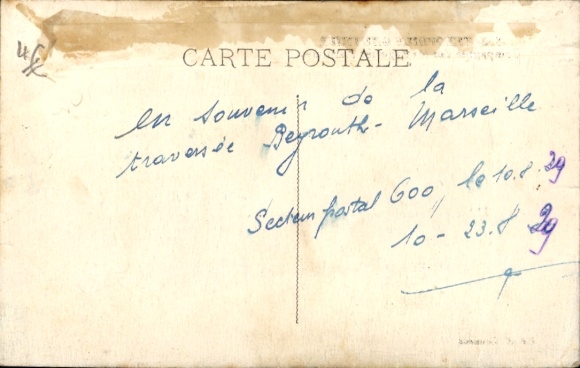 CARTE POSTALE
en souvenir de la
traversée Beyrouth - Marseille
Secteur postal 600, le 10.8.29
10 - 23.8.29